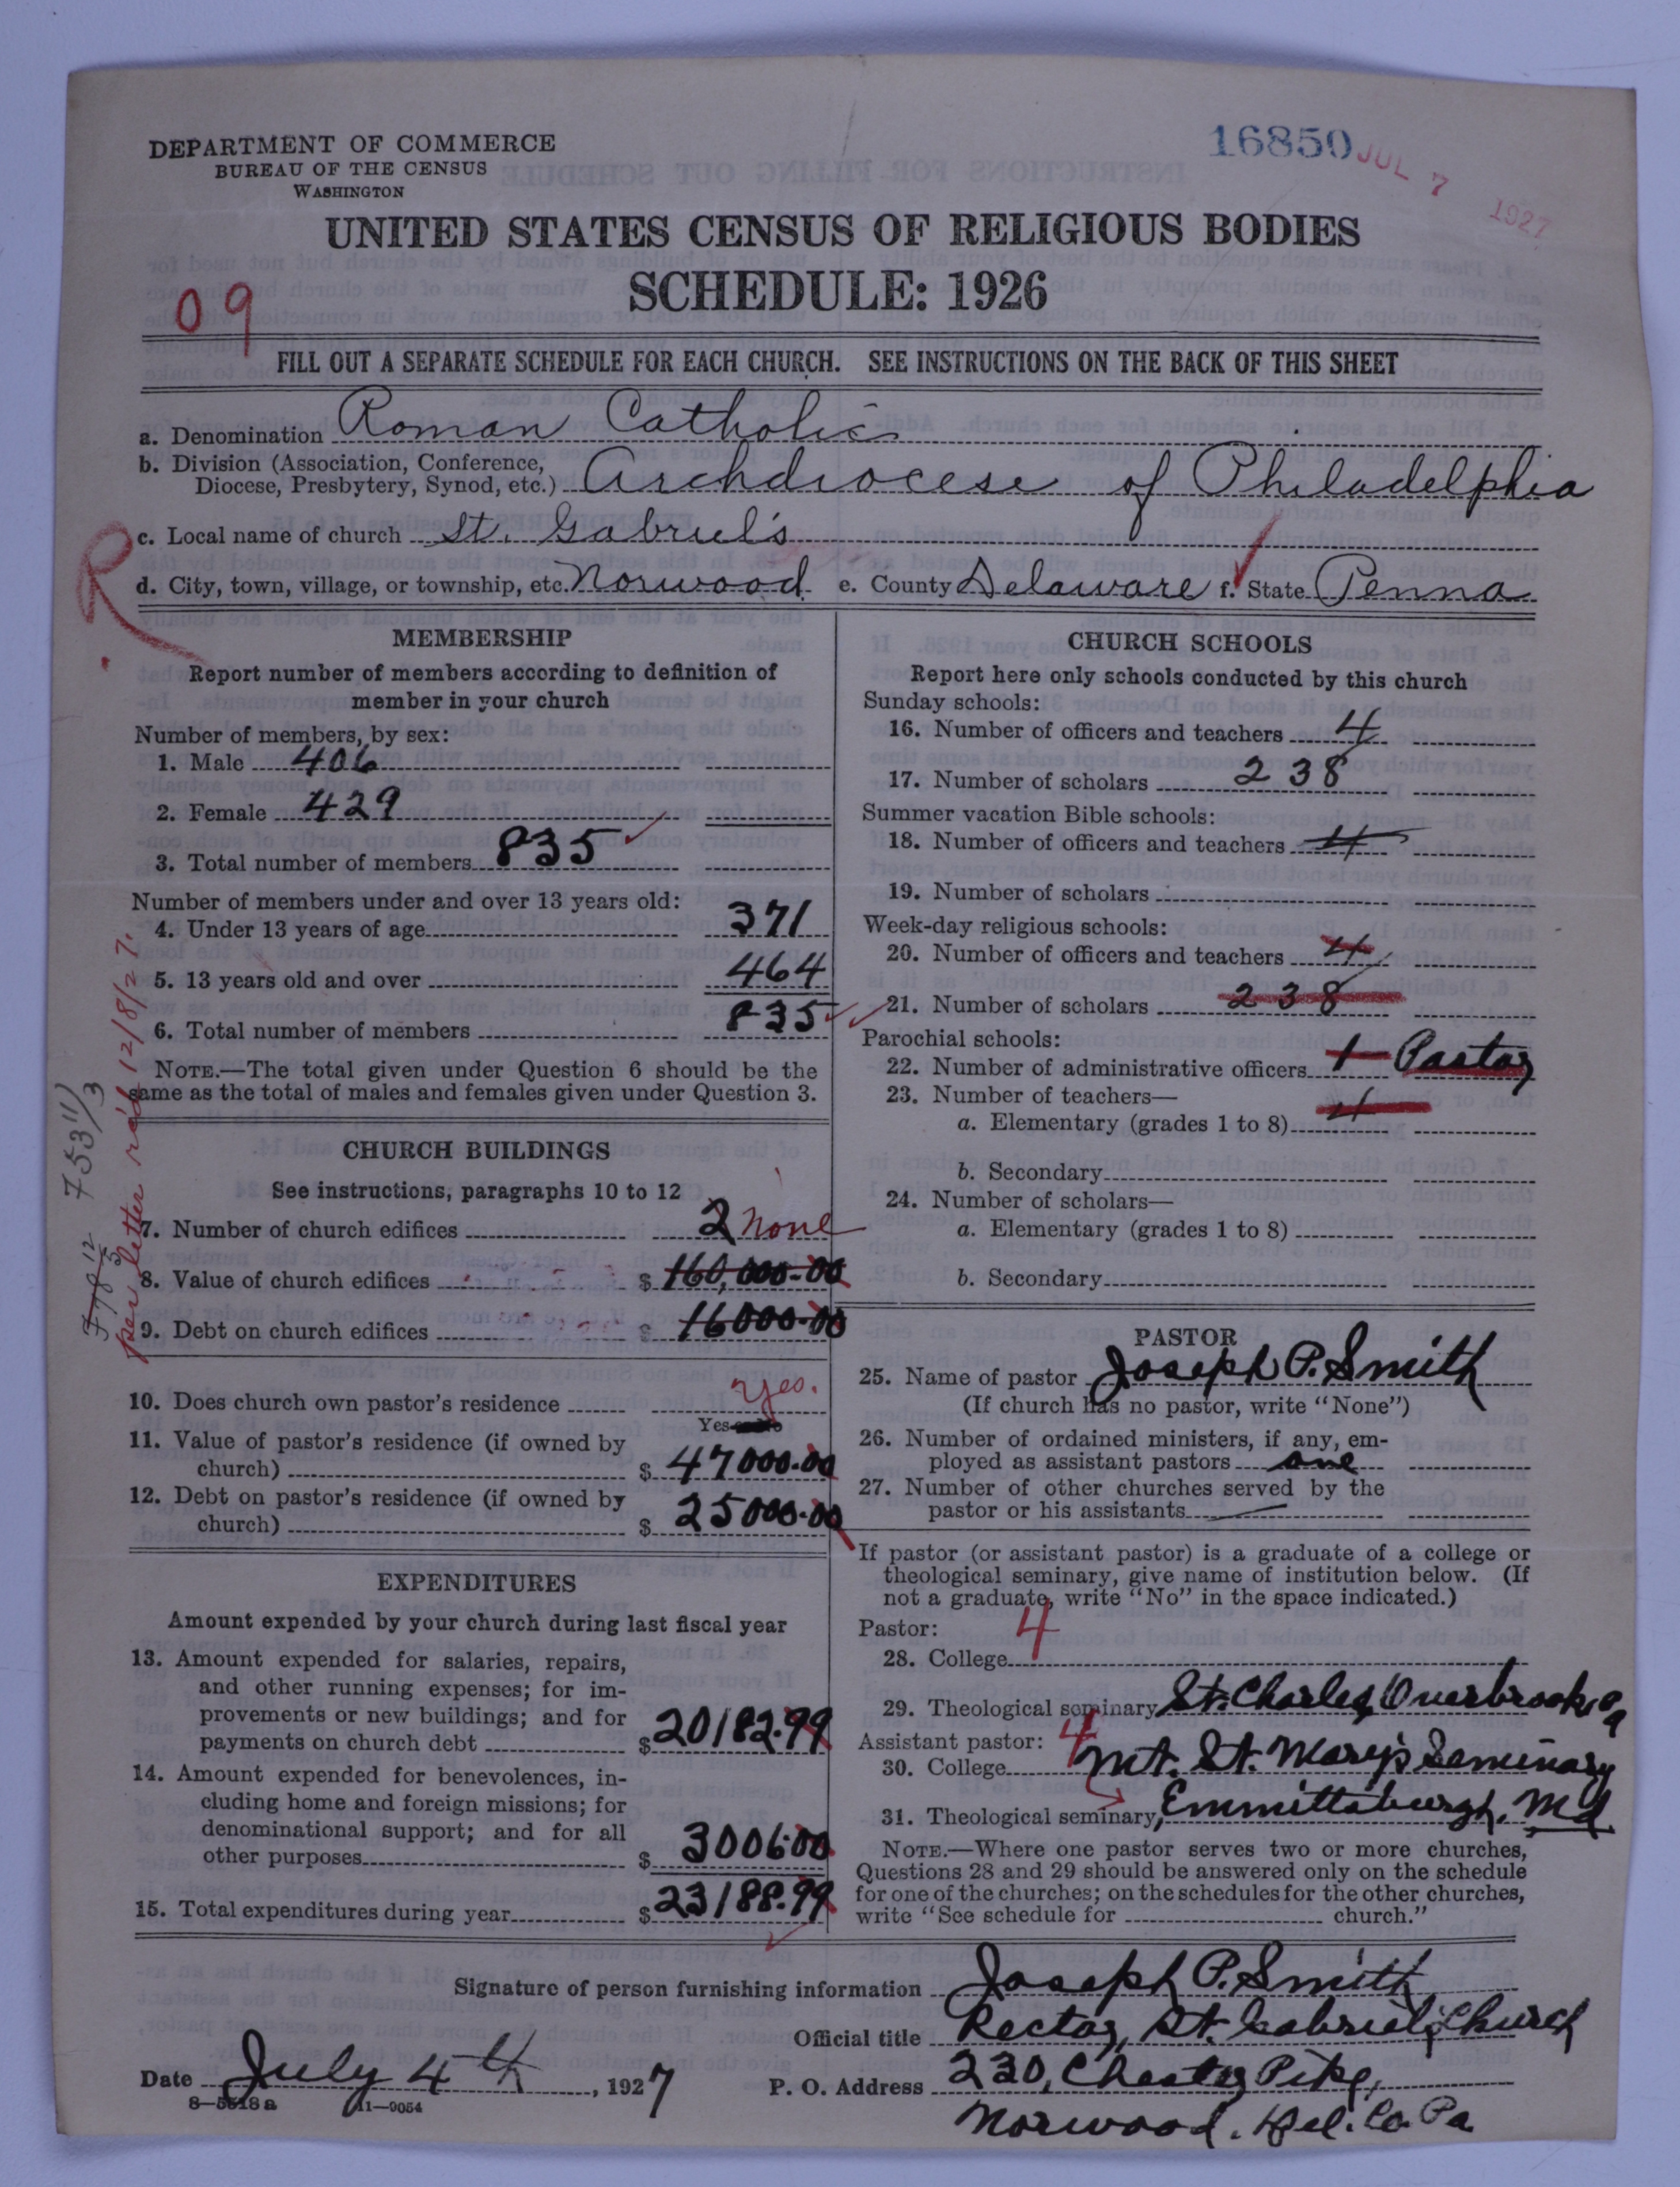 DEPARTMENT OF COMMERCE
BUREAU OF THE CENSUS
WASHINGTON
16850
JUL 7 1927
UNITED STATES CENSUS OF RELIGIOUS BODIES
SCHEDULE: 1926
09
FILL OUT A SEPARATE SCHEDULE FOR EACH CHURCH. SEE INSTRUCTIONS ON THE BACK OF THIS SHEET
a. Denomination Roman Catholic
b. Division (Association, Conference,
Diocese, Presbytery, Synod, etc.) Archdiocese of Philadelphia
c. Local name of church St. Gabriel's
R
d. City, town, village, or township, etc. Norwood e. County Delaware f. State Penna
MEMBERSHIP
Report number of members according to definition of
member in your church
Number of members, by sex:
1. Male 406
2. Female 429
3. Total number of members 835
Number of members under and over 13 years old:
4. Under 13 years of age 371
5. 13 years old and over 464
6. Total number of members 835
NOTE.—The total given under Question 6 should be the
same as the total of males and females given under Question 3.
per letter rec'd 12/8/27.
CHURCH BUILDINGS
See instructions, paragraphs 10 to 12
7. Number of church edifices 2 none
8. Value of church edifices $ 160,000.00
9. Debt on church edifices $ 16000.00
10. Does church own pastor's residence Yes.
Yes or No
11. Value of pastor's residence (if owned by
church) $ 47000.00
12. Debt on pastor's residence (if owned by
church) $ 25000.00
EXPENDITURES
Amount expended by your church during last fiscal year
13. Amount expended for salaries, repairs,
and other running expenses; for im-
provements or new buildings; and for
payments on church debt $ 20182.99
14. Amount expended for benevolences, in-
cluding home and foreign missions; for
denominational support; and for all
other purposes $ 3006.00
15. Total expenditures during year $ 23188.99
CHURCH SCHOOLS
Report here only schools conducted by this church
Sunday schools:
16. Number of officers and teachers 4
17. Number of scholars 238
Summer vacation Bible schools:
18. Number of officers and teachers 4
19. Number of scholars
Week-day religious schools:
20. Number of officers and teachers 4
21. Number of scholars 238
Parochial schools:
22. Number of administrative officers 1 Pastor
23. Number of teachers—
a. Elementary (grades 1 to 8) 4
b. Secondary
24. Number of scholars—
a. Elementary (grades 1 to 8)
b. Secondary
PASTOR
25. Name of pastor Joseph P. Smith
(If church has no pastor, write "None")
26. Number of ordained ministers, if any, em-
ployed as assistant pastors one
27. Number of other churches served by the
pastor or his assistants —
If pastor (or assistant pastor) is a graduate of a college or
theological seminary, give name of institution below. (If
not a graduate, write "No" in the space indicated.)
Pastor: 4
28. College
29. Theological seminary St. Charles, Overbrook, Pa
Assistant pastor: 4
30. College Mt. St. Mary's Seminary
31. Theological seminary, Emmittsburgh. Md
NOTE.—Where one pastor serves two or more churches,
Questions 28 and 29 should be answered only on the schedule
for one of the churches; on the schedules for the other churches,
write "See schedule for church."
Signature of person furnishing information Joseph P. Smith
Official title Rector, St. Gabriel's Church
Date July 4th, 1927 P. O. Address 230, Chester Pike,
8—5518a 11—9054
Norwood. Del. Co. Pa